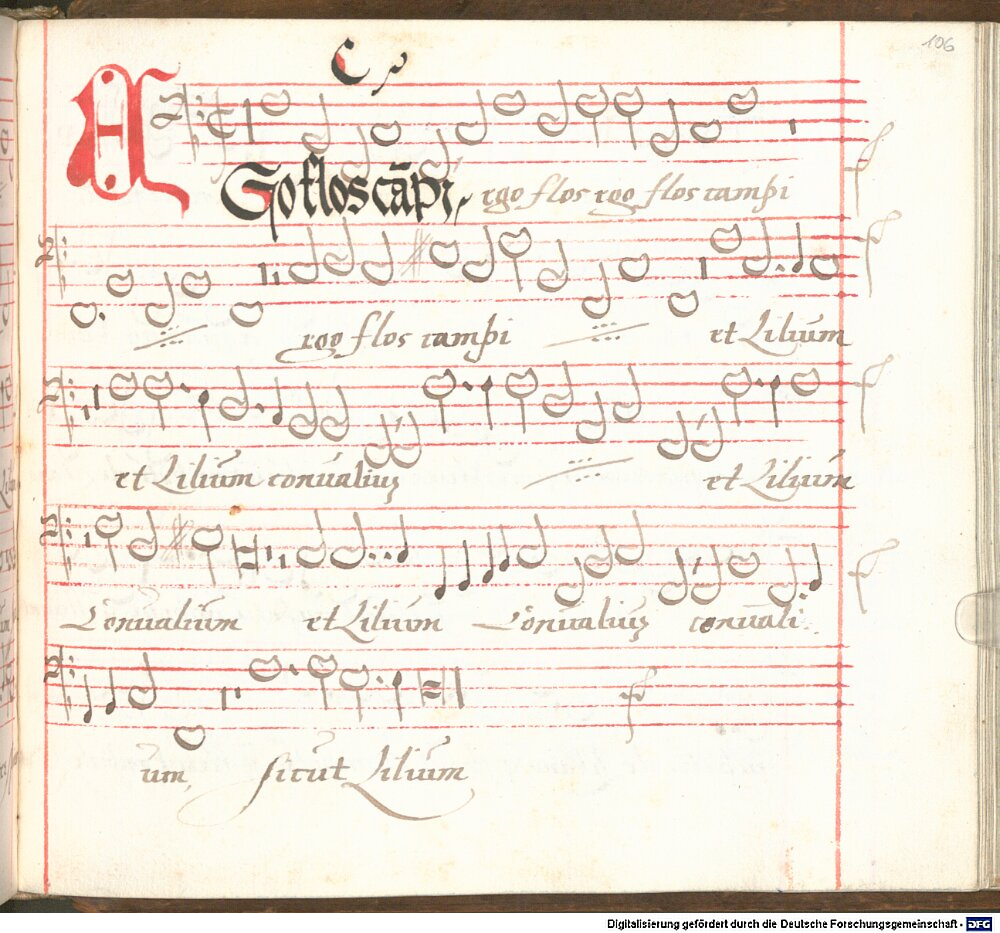 106
Go flos cãpi, ego flos ego flos campi
ego flos campi et Liliũm
et Liliũm conũaliuʒ et Liliũm
Conũaliũm et Liliũm Conũaliuʒ conũali..
ũm, sicũt Liliũm
Digitalisierung gefördert durch die Deutsche Forschungsgemeinschaft - DFG